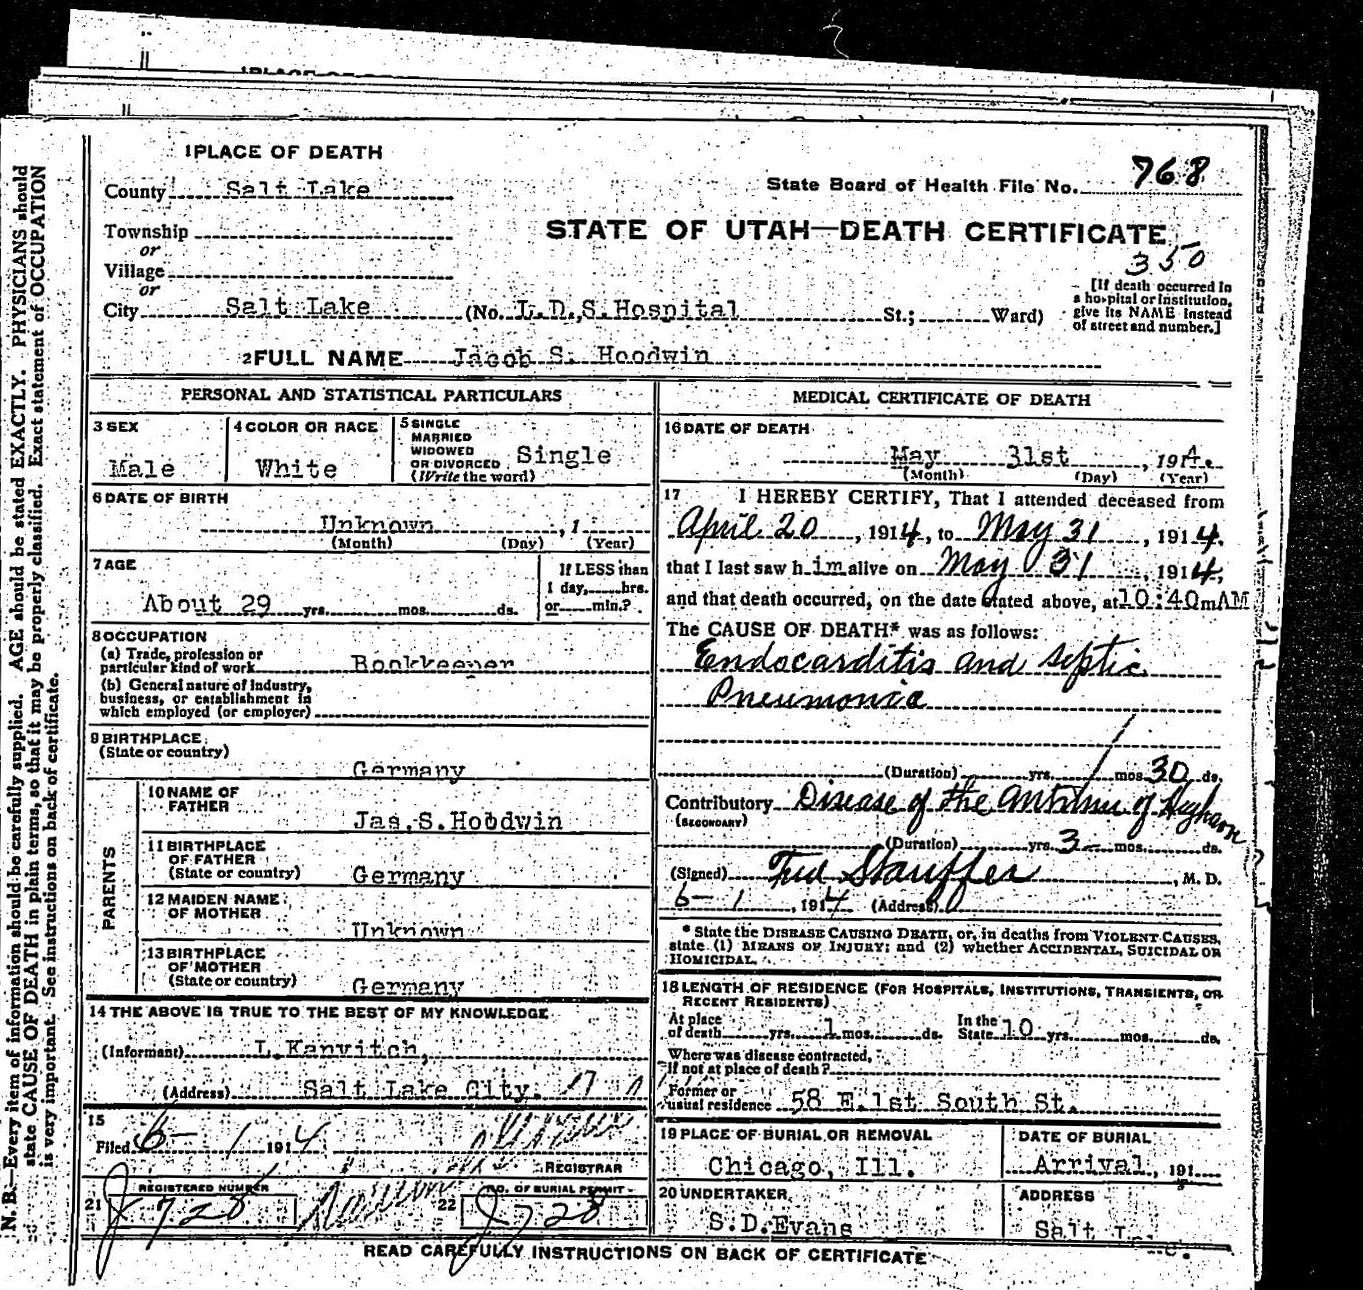 1 PLACE OF DEATH
County Salt Lake
State Board of Health File No. 768
Township
or
Village
or
STATE OF UTAH—DEATH CERTIFICATE
350
[If death occurred in a hospital or institution, give its NAME instead of street and number.]
City Salt Lake (No. L.D.S. Hospital St.; Ward)
2 FULL NAME Jacob S. Hoodwin
PERSONAL AND STATISTICAL PARTICULARS
3 SEX
Male
4 COLOR OR RACE
White
5 SINGLE
MARRIED
WIDOWED
OR DIVORCED Single
(Write the word)
6 DATE OF BIRTH
Unknown , 1
(Month) (Day) (Year)
7 AGE
About 29 yrs. mos. ds.
If LESS than
1 day, hrs.
or min.?
8 OCCUPATION
(a) Trade, profession or
particular kind of work Bookkeeper
(b) General nature of industry,
business, or establishment in
which employed (or employer)
9 BIRTHPLACE
(State or country)
Germany
PARENTS
10 NAME OF
FATHER
Jas. S. Hoodwin
11 BIRTHPLACE
OF FATHER
(State or country) Germany
12 MAIDEN NAME
OF MOTHER
Unknown
13 BIRTHPLACE
OF MOTHER
(State or country) Germany
14 THE ABOVE IS TRUE TO THE BEST OF MY KNOWLEDGE
(Informant) L. Kanvitch,
(Address) Salt Lake City.
15
Filed 6-1 1914
REGISTRAR
REGISTERED NUMBER
21 J 728
NO. OF BURIAL PERMIT
22 J 728
MEDICAL CERTIFICATE OF DEATH
16 DATE OF DEATH
May 31st , 1914.
(Month) (Day) (Year)
17 I HEREBY CERTIFY, That I attended deceased from
April 20, 1914, to May 31, 1914.
that I last saw him alive on May 31, 1914,
and that death occurred, on the date stated above, at 10:40 m AM
The CAUSE OF DEATH* was as follows:
Endocarditis and septic
Pneumonia
(Duration) yrs. 1 mos. 30 ds.
Contributory Disease of the Antrum of Highmore
(SECONDARY)
(Duration) yrs. 3 mos. ds.
(Signed) Fred Stauffer, M. D.
6-1, 1914 (Address)
* State the DISEASE CAUSING DEATH, or, in deaths from VIOLENT CAUSES,
state (1) MEANS OF INJURY; and (2) whether ACCIDENTAL, SUICIDAL OR
HOMICIDAL.
18 LENGTH OF RESIDENCE (FOR HOSPITALS, INSTITUTIONS, TRANSIENTS, OR
RECENT RESIDENTS)
At place
of death yrs. 1 mos. ds. In the
State 10 yrs. mos. ds.
Where was disease contracted,
if not at place of death?
Former or
usual residence 58 E. 1st South St.
19 PLACE OF BURIAL OR REMOVAL
Chicago, Ill.
DATE OF BURIAL
Arrival, 191
20 UNDERTAKER
S.D. Evans
ADDRESS
Salt
READ CAREFULLY INSTRUCTIONS ON BACK OF CERTIFICATE
N. B.—Every item of information should be carefully supplied. AGE should be stated EXACTLY. PHYSICIANS should
state CAUSE OF DEATH in plain terms, so that it may be properly classified. Exact statement of OCCUPATION
is very important. See instructions on back of certificate.